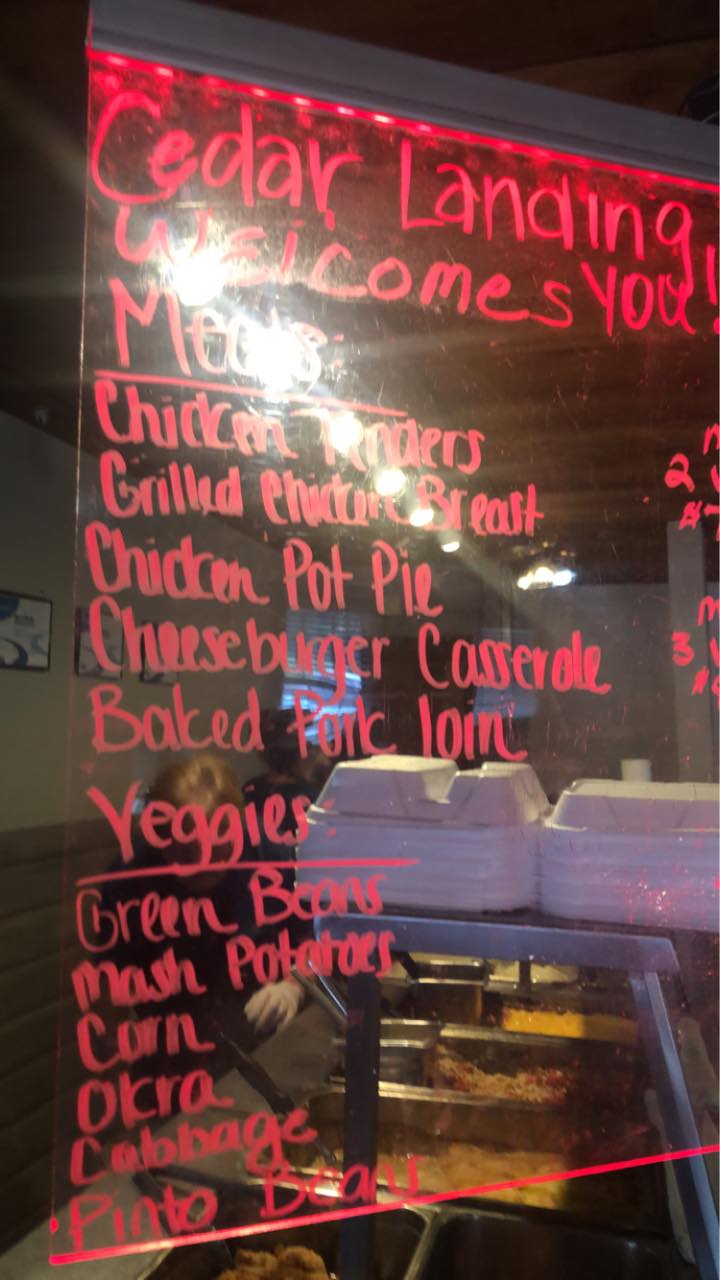 Cedar Landing
Welcomes You!
Meats:
Chicken Tenders
Grilled Chicken Breast
Chicken Pot Pie
Cheeseburger Casserole
Baked Pork loin
Veggies:
Green Beans
Mash Potatoes
Corn
Okra
Cabbage
Pinto Beans
2
3